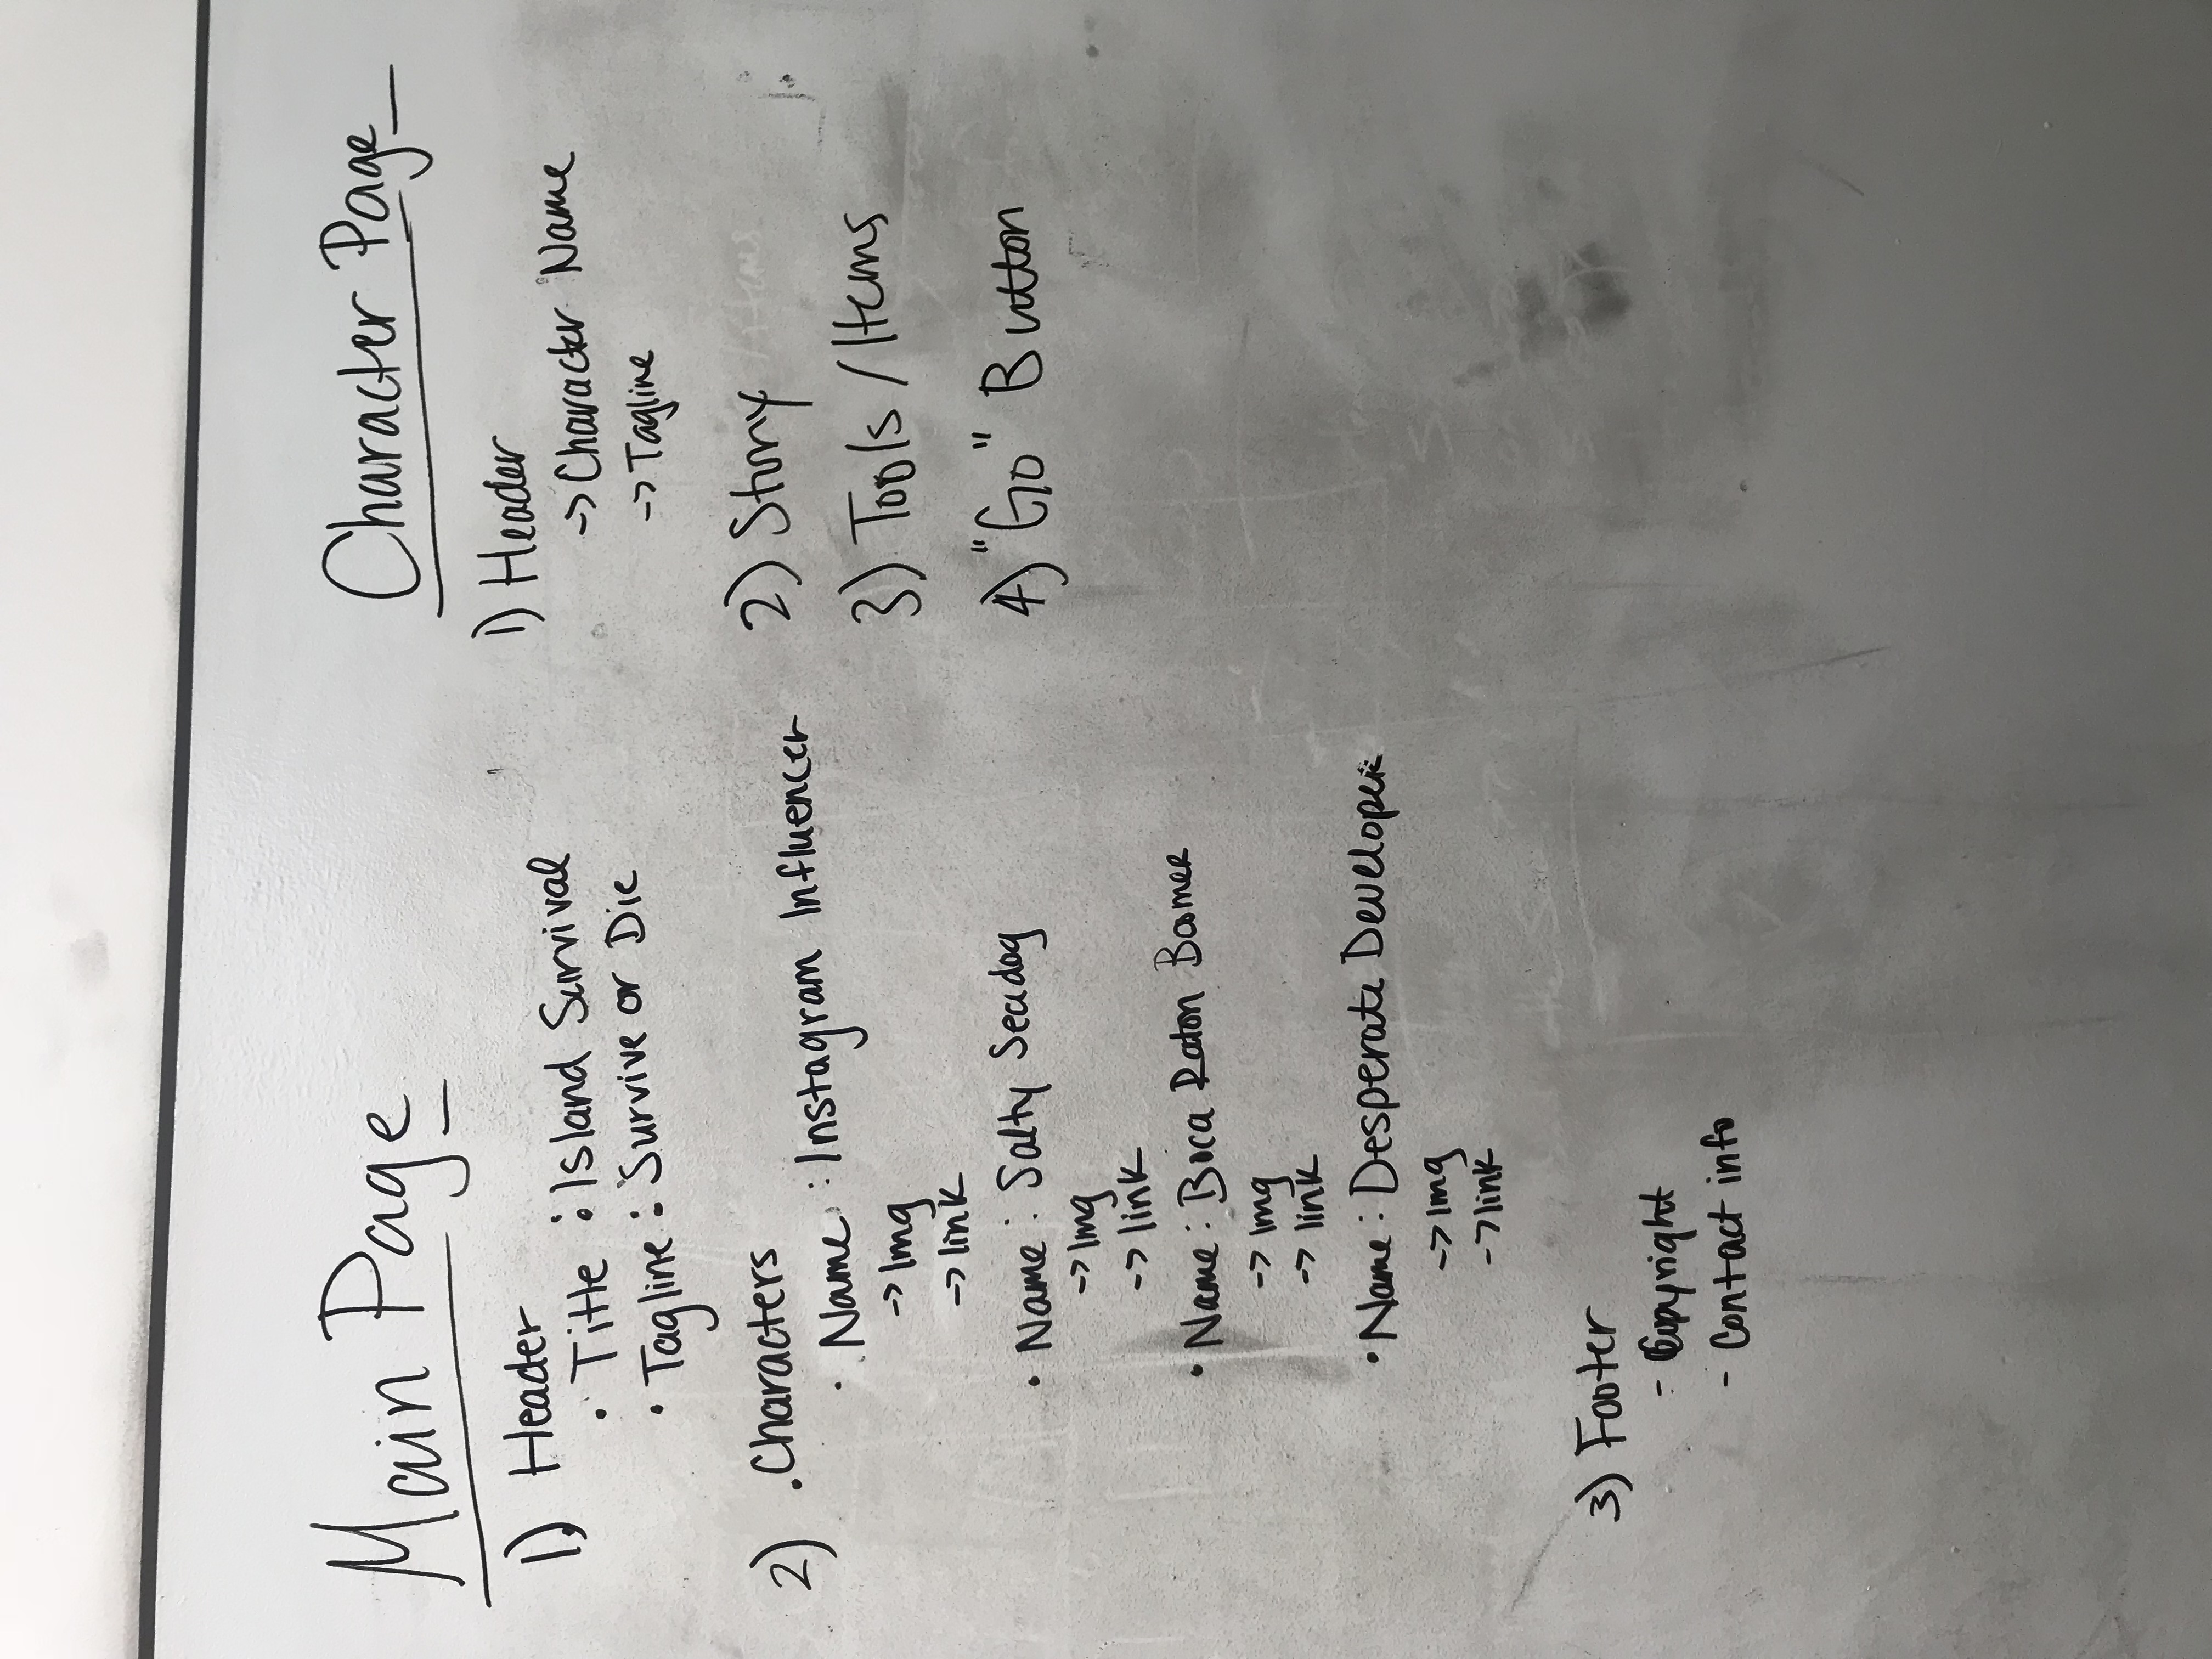 Main Page
1) Header
• Title : Island Survival
• Tagline : Survive or Die
2) . Characters
• Name : Instagram Influencer
-> Img
-> link
• Name : Salty Seadog
-> Img
-> link
• Name : Boca Raton Boomer
-> Img
-> link
• Name : Desperate Developer
-> Img
-> link
3) Footer
- Copyright
- Contact info
Character Page
1) Header
-> Character Name
-> Tagline
2) Story
3) Tools / Items
4) "Go" Button